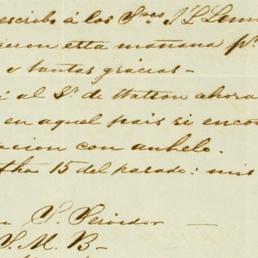 escribo á los Sres J. L. Lenn
ieron esta mañana pr.
s y tantas grácias—
í al Sr. de Watson ahora
en aquel pais si enco
acion con anhelo.
tha 15 del pasado: mis
Y. Servidor
S. M. B—